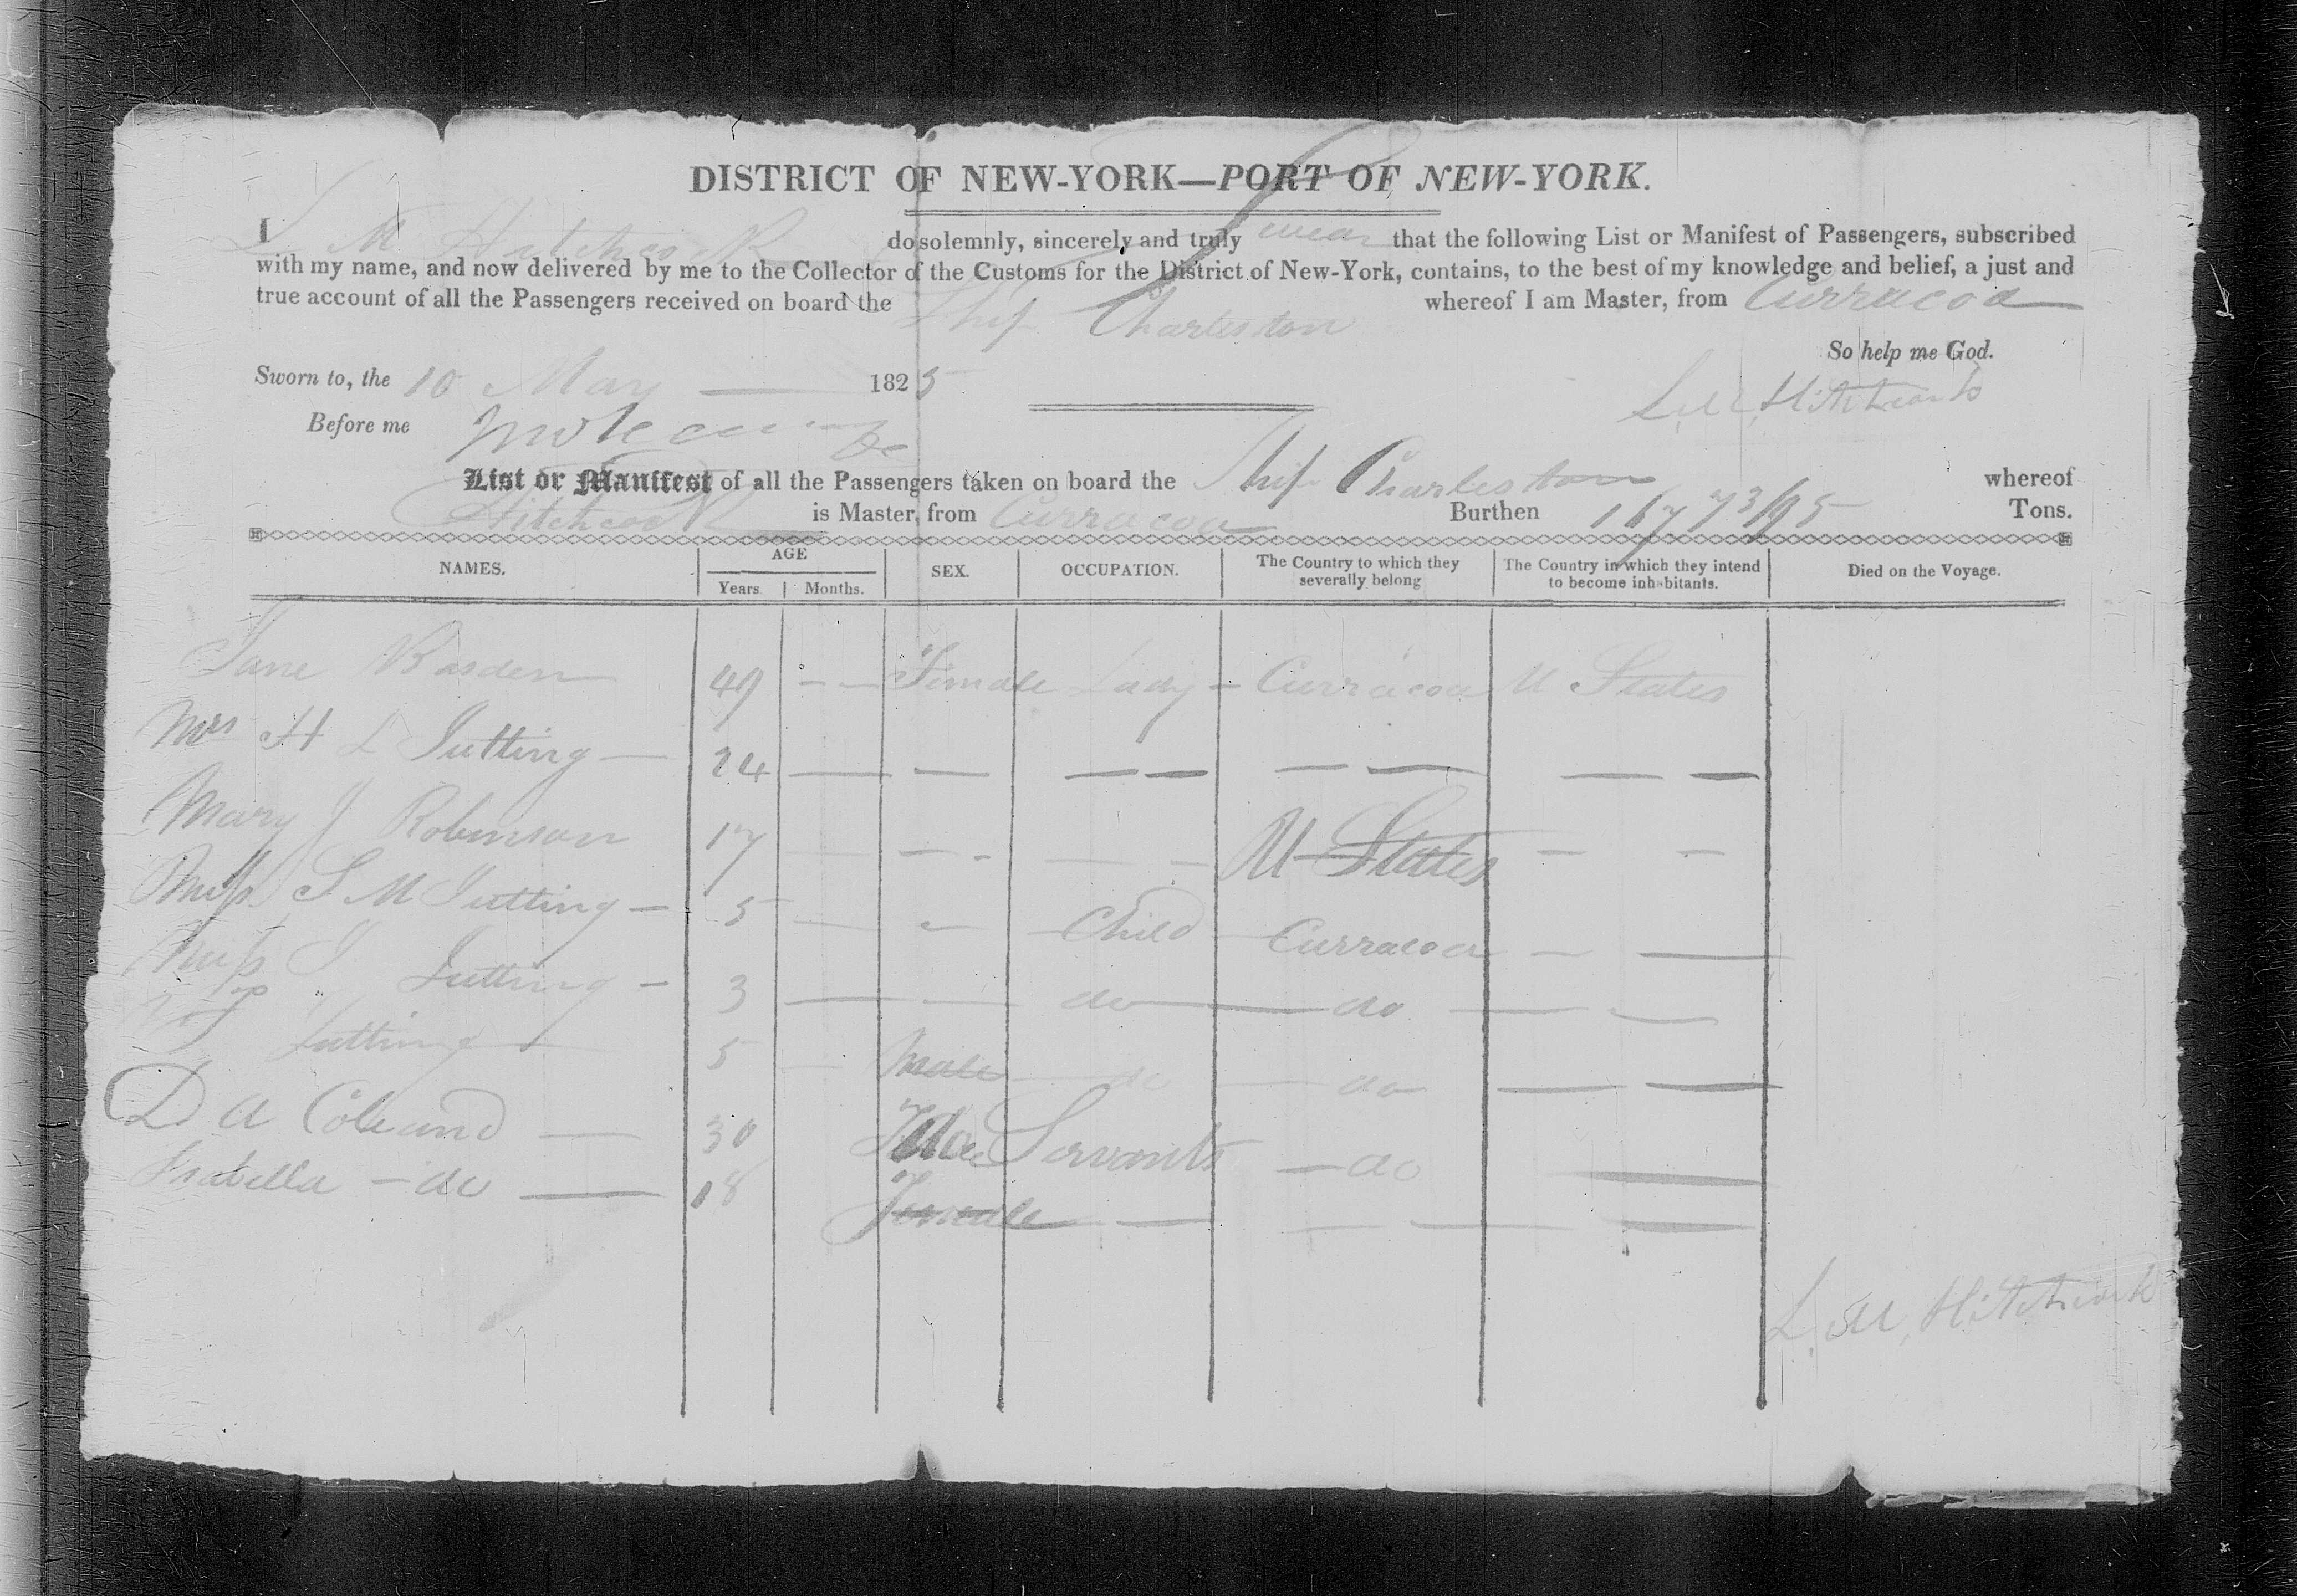 DISTRICT OF NEW-YORK—PORT OF NEW-YORK.
I L M Hitchcock do solemnly, sincerely and truly swear that the following List or Manifest of Passengers, subscribed
with my name, and now delivered by me to the Collector of the Customs for the District of New-York, contains, to the best of my knowledge and belief, a just and
true account of all the Passengers received on board the Ship Charleston whereof I am Master, from Curracoa
So help me God.
Sworn to, the 10 May 1825
L M Hitchcock
Before me
List or Manifest of all the Passengers taken on board the Ship Charleston whereof
Hitchcock is Master, from Curracoa Burthen 167 73/95 Tons.
NAMES. AGE Years Months. SEX. OCCUPATION. The Country to which they severally belong The Country in which they intend to become inhabitants. Died on the Voyage.
Jane Basden 49 — — Female Lady — Curracoa U States
Mrs H L Jutting — 24 — — — — — — — —
Mary J Robinson 17 — — - — — U States — —
Miss S M Jutting — 5 — — Child Curracoa — —
Miss J Jutting — 3 — — do — do — —
Jutting 5 — Male — do — do — —
D A 30 Servants — do —
Isabella — do — 18 Female — — — — —
L M Hitchcock